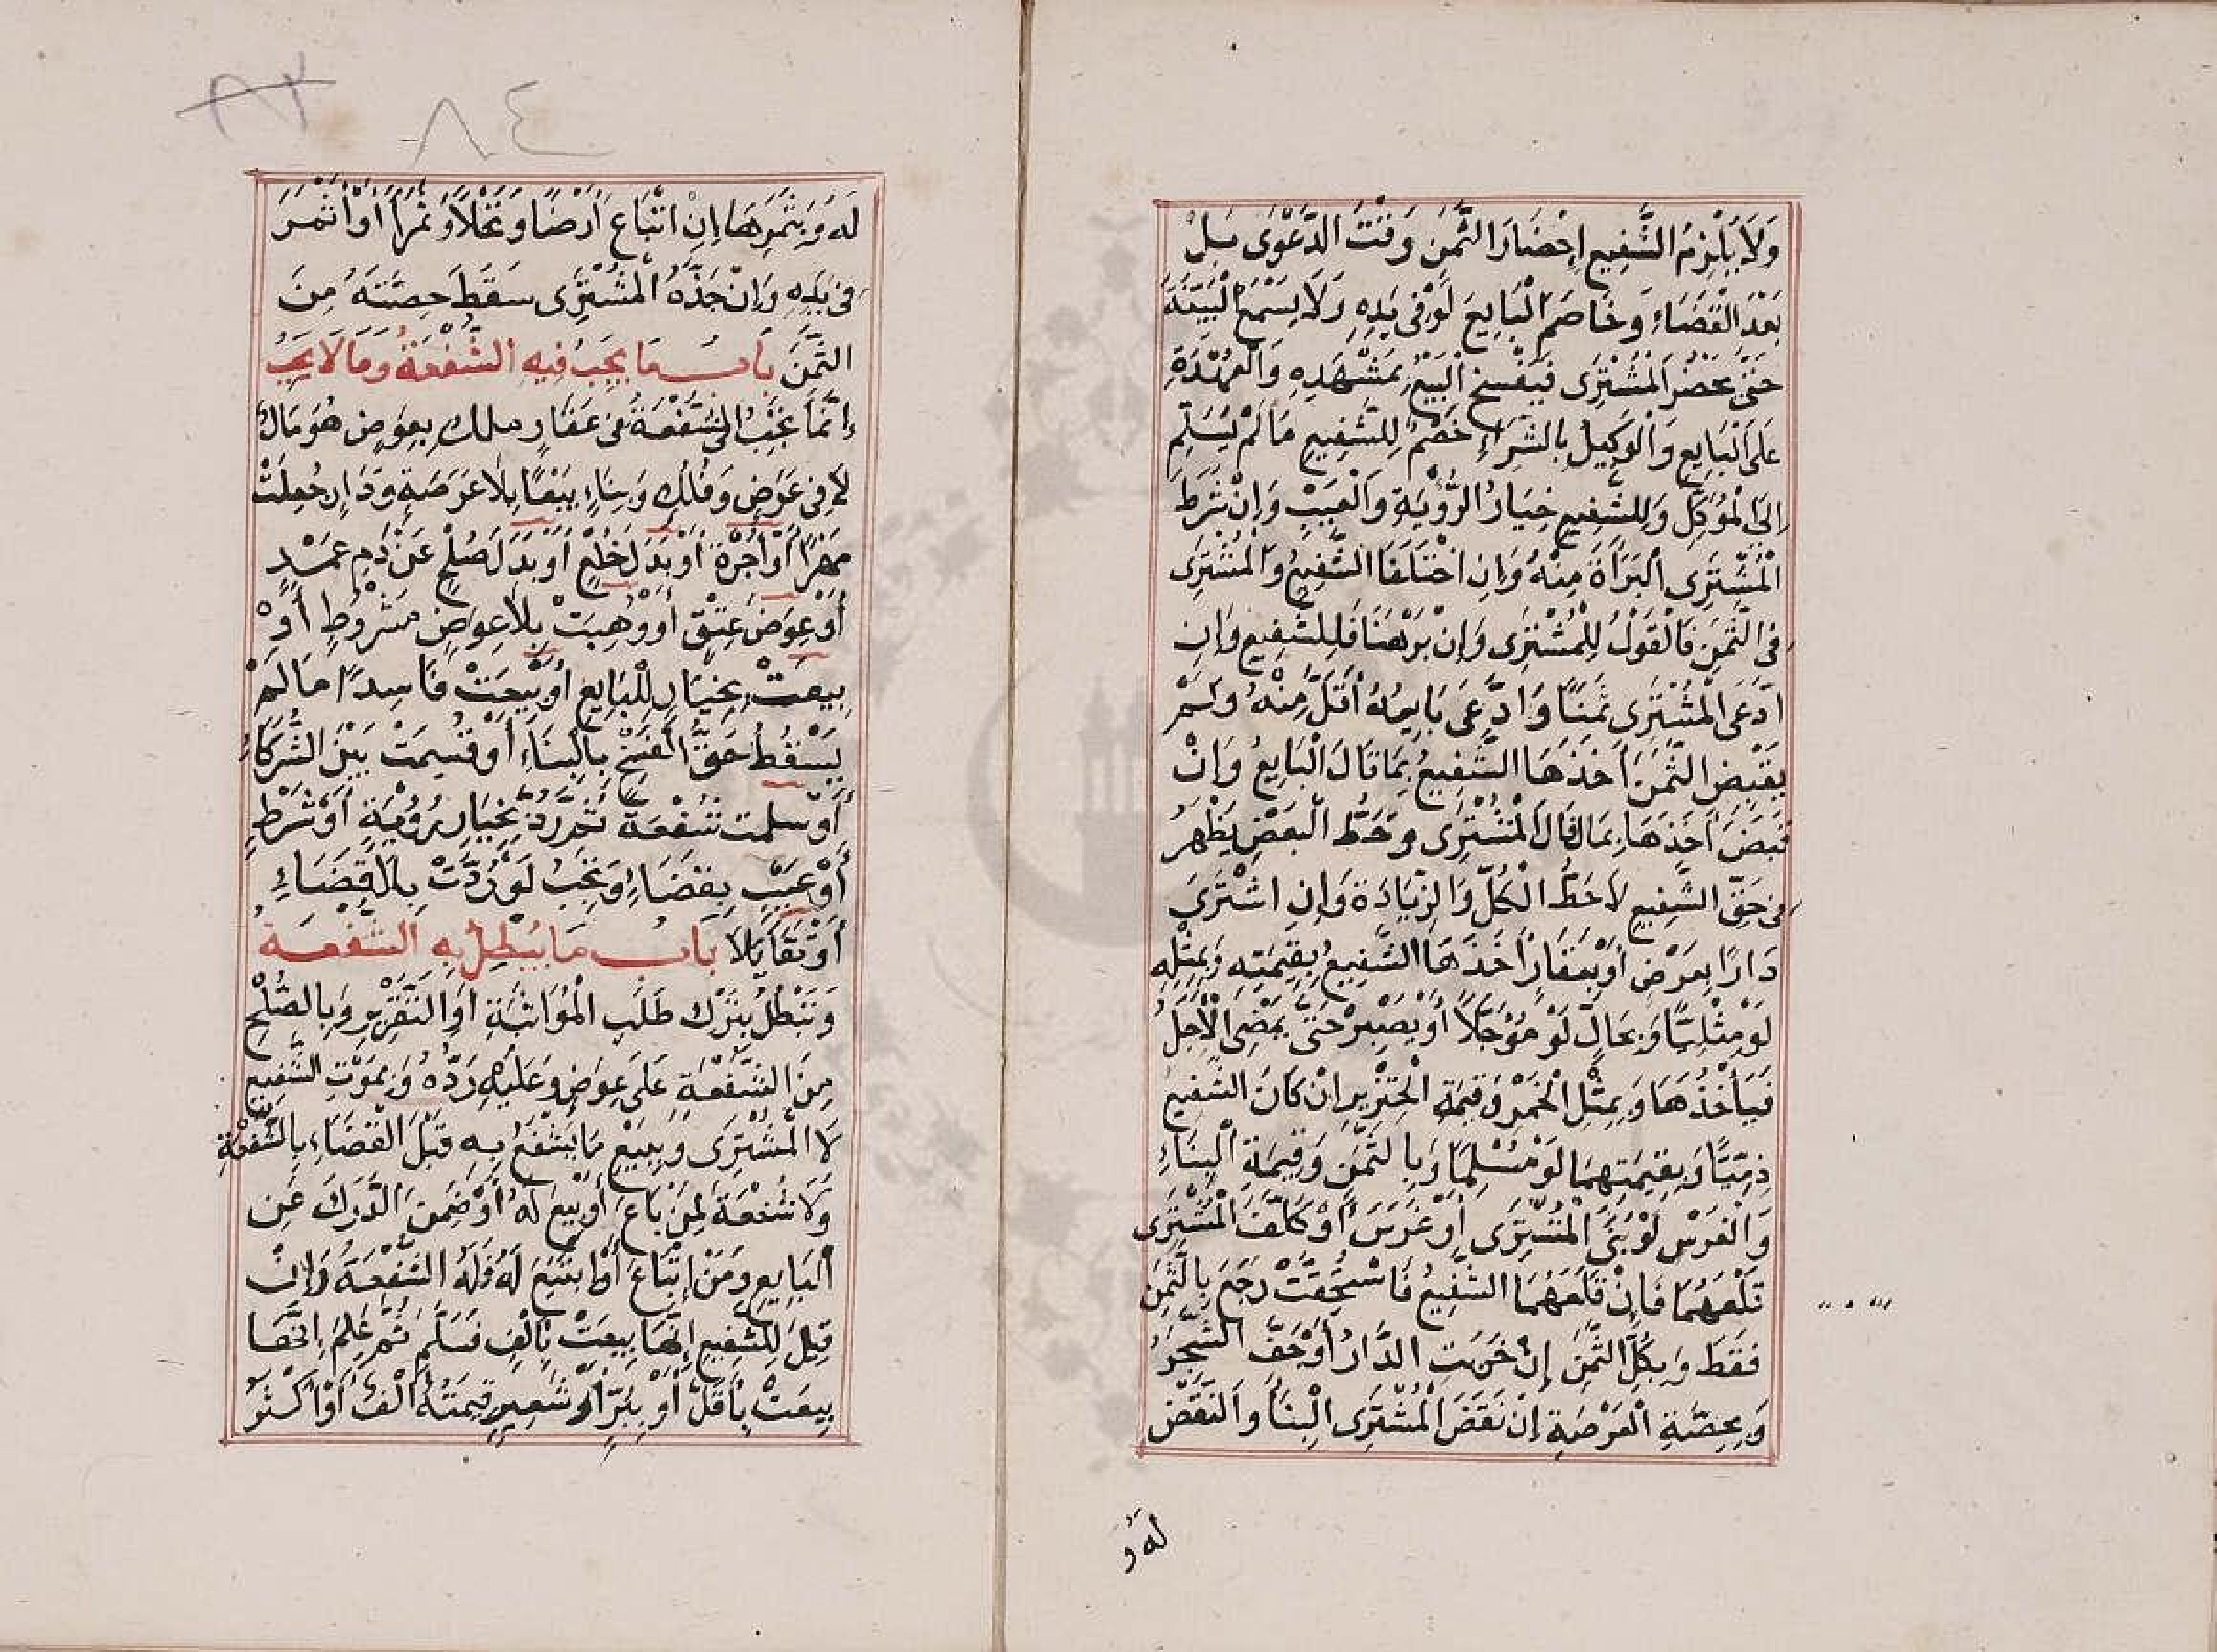 وَلَا يُلْزِمُ الشَّفِيعِ اِحْضَارَ الثَّمَنِ وَقْتَ الدَّعْوَى بَلْ
بَعْدَ الْقَضَاءِ وَخَاصَمَ الْبَايِعَ لَوْ فِي يَدِهِ وَلَا يَسْمَعُ الْبَيِّنَةَ
حَتَّى يَحْضُرَ الْمُشْتَرِى فَيَفْسَخُ الْبَيْعَ بِمَشْهَدِهِ وَالْعُهْدَةِ
عَلَى الْبَايِعِ وَالْوَكِيلُ بِالشِّرَاءِ خَصْمٌ لِلشَّفِيعِ مَالَمْ يُسَلِّمْ
اِلَى الْمُوَكِّلِ وَلِلشَّفِيعِ خِيَارُ الرُّؤْيَةِ وَالْعَيْبِ وَاِنْ شَرَطَ
الْمُشْتَرِى الْبَرَاَةَ مِنْهُ وَاِنِ اخْتَلَفَا الشَّفِيعُ وَالْمُشْتَرِى
فِى الثَّمَنِ فَالْقَوْلُ لِلْمُشْتَرِى وَاِنْ بَرْهَنَا فَلِلشَّفِيعِ وَاِنِ
ادَّعَى الْمُشْتَرِى ثَمَنًا وَادَّعَى بَايِعُهُ اَقَلَّ مِنْهُ وَلَمْ
يَقْبِضِ الثَّمَنَ اَخَذَهَا الشَّفِيعُ بِمَا قَالَ الْبَايِعُ وَاِنْ
قَبَضَ اَخَذَهَا بِمَا قَالَ الْمُشْتَرِى وَحَطُّ الْبَعْضِ يَظْهَرُ
فِى حَقِّ الشَّفِيعِ لَا حَطُّ الْكُلِّ وَالزِّيَادَةِ وَاِنِ اشْتَرَىَ
دَارًا بِعَرْضٍ اَوْ بِعَقَارٍ اَخَذَهَا الشَّفِيعُ بِقِيمَتِهِ وَبِمِثْلِهِ
لَوْ مِثْلِيًّا وَبِحَالٍّ لَوْ مُؤَجَّلًا اَوْ يَصْبِرُ حَتَّى يَمْضِىَ الْاَجَلُ
فَيَأْخُذُهَا وَبِمِثْلِ الْخَمْرِ وَقِيمَةِ الْخِنْزِيرِ اِنْ كَانَ الشَّفِيعُ
ذِمِّيًّا وَبِقِيمَتِهِمَا لَوْ مُسْلِمًا وَبِالثَّمَنِ وَقِيمَةِ الْبِنَاءِ
وَالْغَرْسِ لَوْ بَنَى الْمُشْتَرِى اَوْ غَرَسَ اَوْ كَلَّفَ الْمُشْتَرِى
قَلْعَهُمَا فَاِنْ قَلَعَهُمَا الشَّفِيعُ فَاسْتُحِقَّتْ رَجَعَ بِالثَّمَنِ
فَقَطْ وَبِكُلِّ الثَّمَنِ اِنْ خَرِبَتِ الدَّارُ اَوْ جَفَّ الشَّجَرُ
وَبِحِصَّةِ الْعَرْصَةِ اِنْ نَقَضَ الْمُشْتَرِى الْبِنَاَ وَالنَّقْضُ
لَهُ وَ
٨٤
لَهُ وَبِثَمَرِهَا اِنِ ابْتَاعَ اَرْضًا وَنَخْلًا وَثَمَرًا اَوْ اَثْمَرَ
فِى يَدِهِ وَاِنْ جَذَّهُ الْمُشْتَرِى سَقَطَ حِصَّتَهُ مِنَ
الثَّمَنِ بَابُ مَا يَجِبُ فِيهِ الشُّفْعَةُ وَمَا لَا يَجِبُ
اِنَّمَا تَجِبُ الشُّفْعَةُ فِى عَقَارٍ ملك بِعِوَضٍ هُوَ مَالٌ
لَا فِى عَرَضٍ وَفُلْكٍ وَبِنَاءٍ بِيْعًا بِلَا عَرَصَةٍ وَدَارٍ جُعِلَتْ
مَهْرًا اَوْ اُجْرَةً اَوْ بَدَلَ خُلْعٍ اَوْ بَدَلَ صُلْحٍ عَنْ دَمِ عَمْدٍ
اَوْ عِوَضَ عِتْقٍ اَوْ وُهِبَتْ بِلَا عِوَضٍ مَشْرُوطٍ اَوْ
بِيعَتْ بِخِيَارٍ لِلْبَايِعِ اَوْ بِيعَتْ فَاسِدًا مَا لَمْ
يَسْقُطْ حَقُّ الْفَسْخِ بِالْبِنَاءِ اَوْ قُسِمَتْ بَيْنَ الشُّرَكَاءِ
اَوْ سلمت شُفْعَةً ثُمَّ رُدَّ بِخِيَارِ رُؤْيَةٍ اَوْ شَرْطٍ
اَوْ عَيْبٍ بِقَضَاءٍ وَتَجِبُ لَوْ رُدَّتْ بِلَا قَضَاءٍ
اَوْ تَقَايَلَا بَابُ مَا يُبْطِلُ بِهِ الشُّفْعَةَ
وَتَبْطُلُ بِتَرْكِ طَلَبِ الْمُوَاثَبَةِ اَوِ التَّقْرِيرِ وَبِالصُّلْحِ
مِنَ الشُّفْعَةِ عَلَى عِوَضٍ وَعَلَيْهِ رَدُّهُ وَبِمَوْتِ الشَّفِيعِ
لَا الْمُشْتَرِى وَبِبَيْعِ مَا يَشْفَعُ بِهِ قَبْلَ الْقَضَاءِ بِالشُّفْعَةِ
وَلَا شُفْعَةَ لِمَنْ بَاعَ اَوْ بِيعَ لَهُ اَوْ ضَمِنَ الدَّرَكَ عَنِ
الْبَايِعِ وَمَنْ اِبْتَاعَ اَوِ ابْتُيِعَ لَهُ فَلَهُ الشُّفْعَةُ وَاِنْ
قِيلَ لِلشَّفِيعِ اِنَّهَا بِيعَتْ بِاَلْفٍ فَسَلَّمَ ثُمَّ عَلِمَ اِنَّهَا
بِيعَتْ بِاَقَلَّ اَوْ بِبُرٍّ اَوْ شَعِيرٍ قِيمَتُهُ اَلْفٌ اَوْ اَكْثَرُ